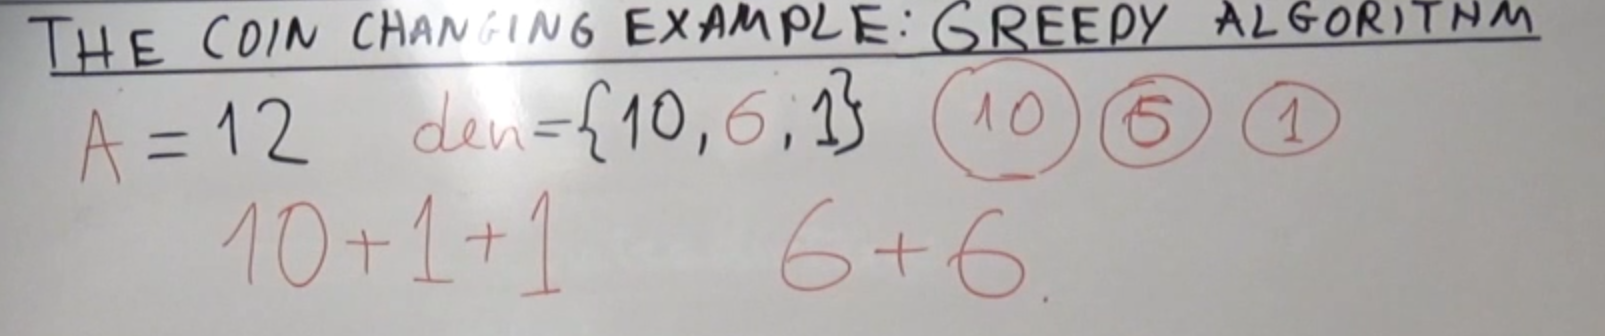 THE COIN CHANGING EXAMPLE: GREEDY ALGORITHM
A = 12 den={10, 6, 1} 10 5 1
10+1+1 6+6.